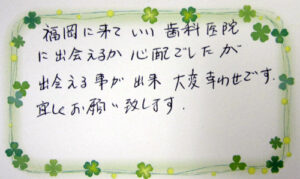 福岡に来て いい 歯科医院
に出会えるか 心配でしたが
出会える事が 出来 大変幸わせです.
宜しくお願い致します.